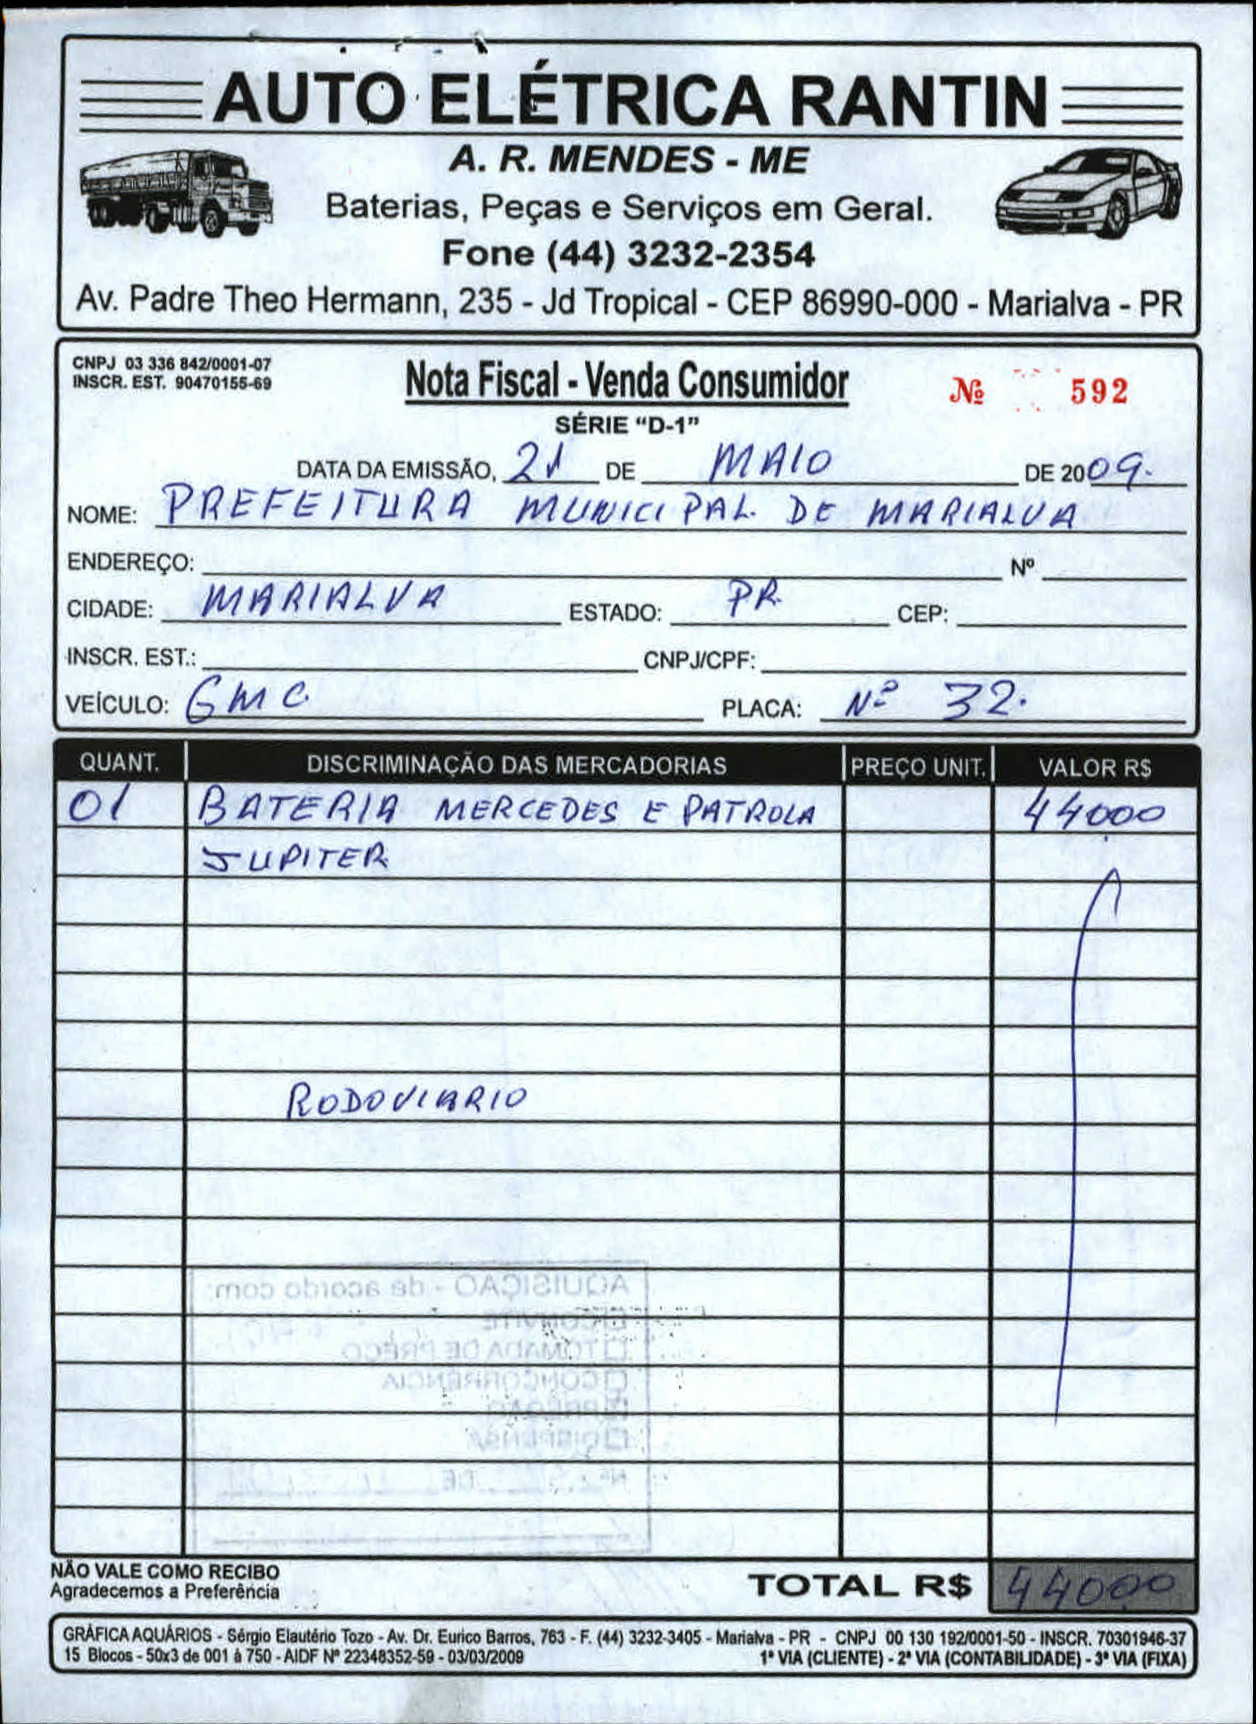 AUTO ELÉTRICA RANTIN
A. R. MENDES - ME
Baterias, Peças e Serviços em Geral.
Fone (44) 3232-2354
Av. Padre Theo Hermann, 235 - Jd Tropical - CEP 86990-000 - Marialva - PR
CNPJ 03 336 842/0001-07
INSCR. EST. 90470155-69
Nota Fiscal - Venda Consumidor
Nº 592
SÉRIE "D-1"
DATA DA EMISSÃO, 21 DE MAIO DE 2009.
NOME: PREFEITURA MUNICIPAL. DE MARIALVA
ENDEREÇO: Nº
CIDADE: MARIALVA ESTADO: PR. CEP:
INSCR. EST.: CNPJ/CPF:
VEÍCULO: GMC. PLACA: Nº 32.
QUANT. DISCRIMINAÇÃO DAS MERCADORIAS PREÇO UNIT. VALOR R$
01 BATERIA MERCEDES E PATROLA 44000
JUPITER
RODOVIARIO
AQUISIÇÃO - de acordo com:
CONVITE
TOMADA DE PREÇO
CONCORRÊNCIA
PREGÃO
DISPENSA
Nº DE
NÃO VALE COMO RECIBO
Agradecemos a Preferência
TOTAL R$ 44000
GRÁFICA AQUÁRIOS - Sérgio Elautério Tozo - Av. Dr. Eurico Barros, 763 - F. (44) 3232-3405 - Marialva - PR - CNPJ 00 130 192/0001-50 - INSCR. 70301946-37
15 Blocos - 50x3 de 001 à 750 - AIDF Nº 22348352-59 - 03/03/2009 1ª VIA (CLIENTE) - 2ª VIA (CONTABILIDADE) - 3ª VIA (FIXA)